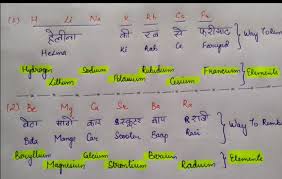 (1) H Li Na K Rb Cs Fr
हेलीना की रब से फरियाद } Way To Rem
Helina Ki Rab Ce Fariyad
Hydrogen Sodium Rubidium Francium } Elements
Lithium Potassium Cesium
(2) Be Mg Ca Sr Ba Ra
बेटा मांगे कार स्कूटर बाप राजी } Way To Remb
Beta Mange Car Scooter Baap Razi
Beryllium Calcium Barium } Elements
Magnesium Strontium Radium